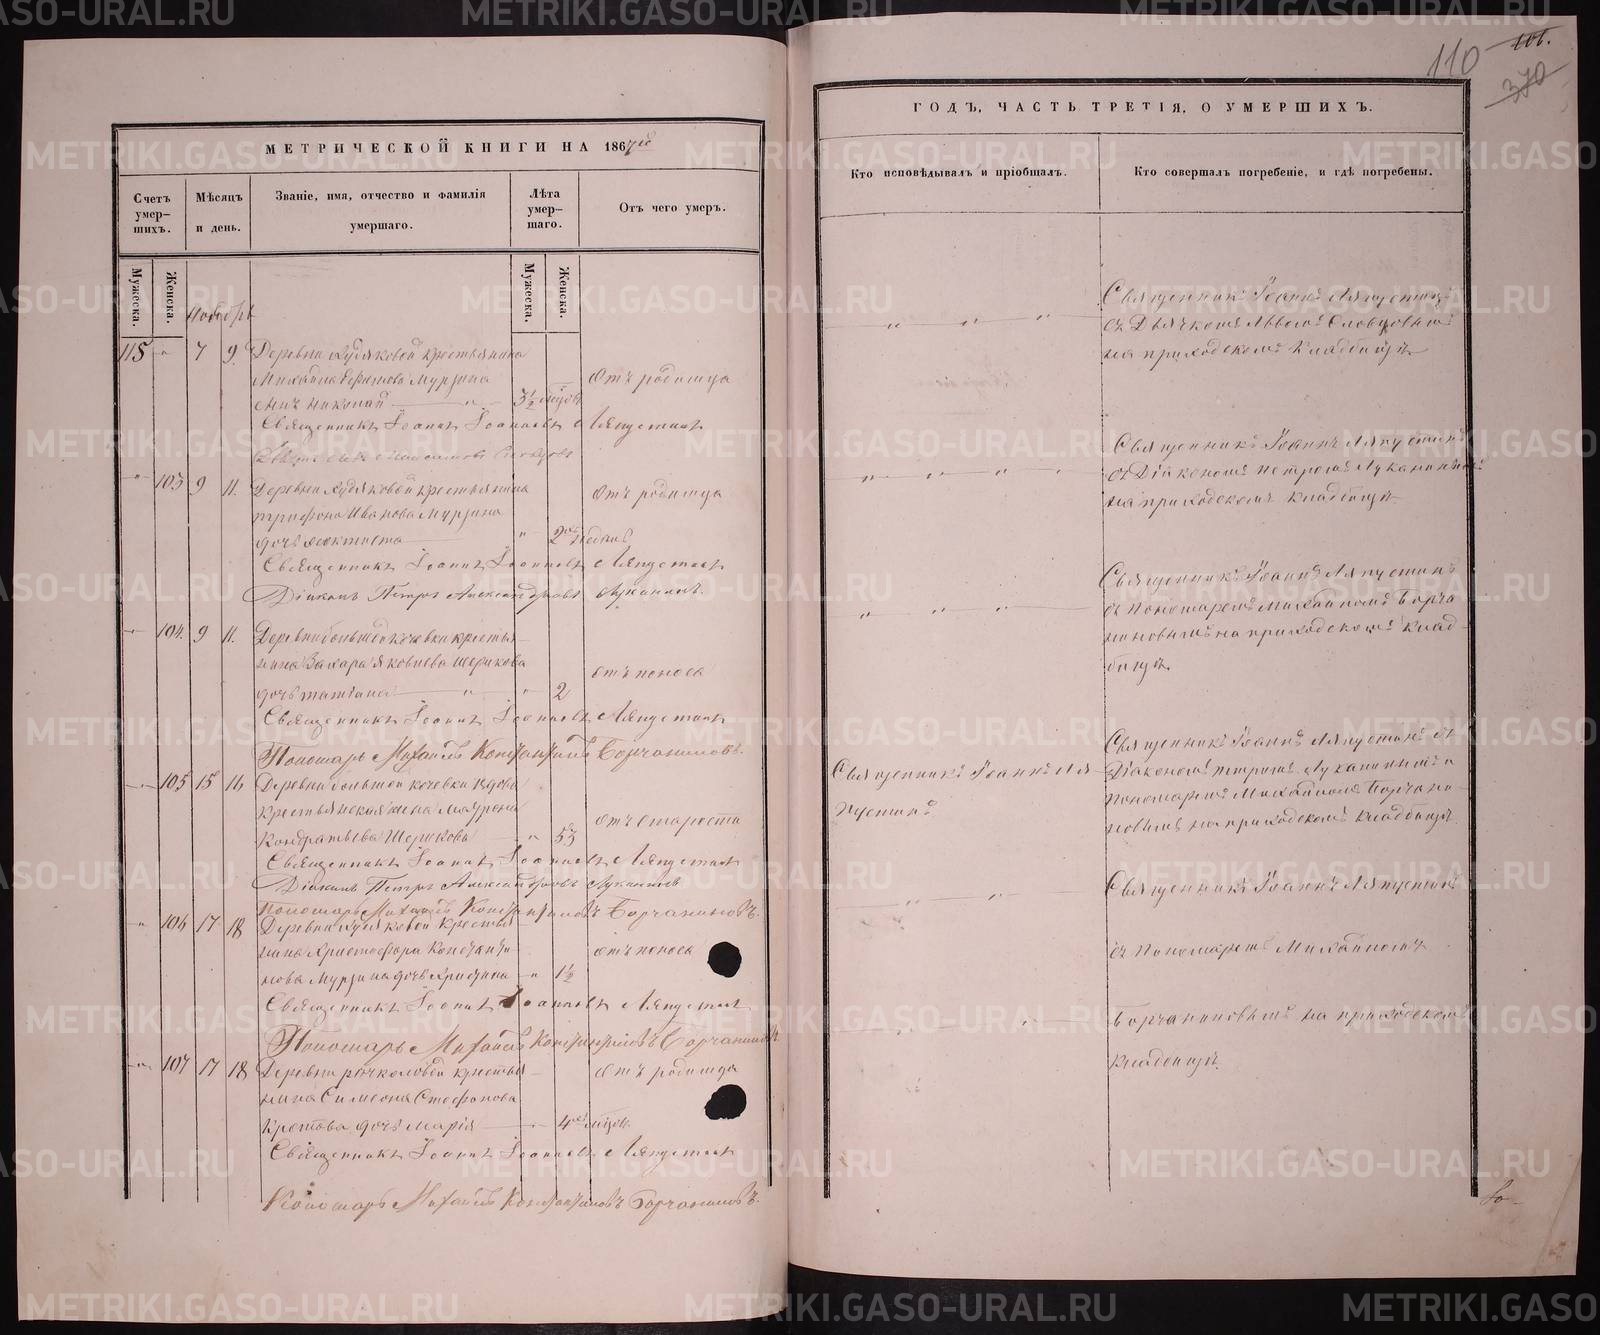 МЕТРИЧЕСКОЙ КНИГИ НА 1867й
Счетъ умер-шихъ.
Мѣсяцъ и день.
Званіе, имя, отчество и фамилія умершаго.
Лѣта умер-шаго.
Отъ чего умеръ.
Мужеска.
Женска.
Мужеска.
Женска.
Ноябрь
115 " 7 9 Деревни Худяковой крестьянина
Михаила Мурзина
сынъ Николай " 3½
Отъ родимца
Священникъ Іоаннъ Іоанновъ Ляпустинъ
" 103 9 11 Деревни Худяковой крестьянина
Трифона Иванова Мурзина
дочь Феоктиста " 2
Отъ родимца
Священникъ Іоаннъ Іоанновъ Ляпустинъ
Діаконъ Петръ Александровъ Луканинъ.
" 104 9 11 Деревни крестья-
нина Захара Яковлева Шерикова
дочь Татіана " 2
отъ поноса
Священникъ Іоаннъ Іоанновъ Ляпустинъ
Пономарь Михаилъ Константиновъ Борчаниновъ.
" 105 15 16 вдова
крестьянская жена
Кондратьева Шерикова " 53
отъ старости
Священникъ Іоаннъ Іоанновъ Ляпустинъ
Діаконъ Петръ Александровъ Луканинъ
Пономарь Михаилъ Константиновъ Борчаниновъ.
" 106 17 18 Деревни Худяковой крестья-
нина Христофора Константи-
нова Мурзина дочь Христина " 1½
отъ поноса
Священникъ Іоаннъ Іоанновъ Ляпустинъ
Пономарь Михаилъ Константиновъ Борчаниновъ
" 107 17 18 Деревни крестья-
нина Симеона Стефанова
Кретова дочь Марія 4
отъ родимца
Священникъ Іоаннъ Іоанновъ Ляпустинъ
Пономарь Михаилъ Константиновъ Борчаниновъ.
110
370
ГОДЪ, ЧАСТЬ ТРЕТІЯ, О УМЕРШИХЪ.
Кто исповѣдывалъ и пріобщалъ.
Кто совершалъ погребеніе, и гдѣ погребены.
Священникъ Іоаннъ Ляпустинъ
съ Дьячкомъ Словцовымъ
на приходскомъ кладбищѣ
Священникъ Іоаннъ Ляпустинъ
съ Діакономъ Петромъ Луканинымъ
на приходскомъ кладбищѣ
Священникъ Іоаннъ Ляпустинъ
съ Пономаремъ Михаиломъ Борча-
ниновымъ на приходскомъ клад-
бищѣ.
Священникъ Іоаннъ Ля-
пустинъ
Священникъ Іоаннъ Ляпустинъ съ
Діакономъ Петромъ Луканинымъ и
Пономаремъ Михаиломъ Борчани-
новымъ на приходскомъ кладбищѣ
Священникъ Іоаннъ Ляпустинъ
съ Пономаремъ Михаиломъ
Борчаниновымъ на приходскомъ
кладбищѣ.
METRIKI.GASO-URAL.RU